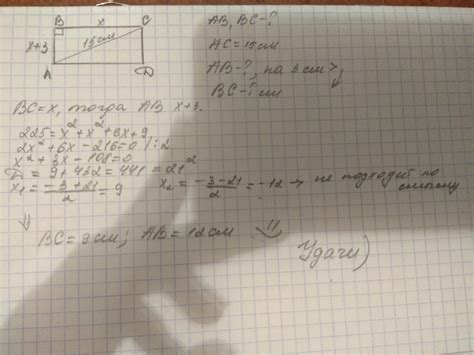 B x C
x+3 15см
A D
AB, BC-?
AC=15см
AB-?, на 3 см >
BC-? см
BC=x, тогда AB x+3.
225=x²+x²+6x+9
2x²+6x-216=0 /:2
x²+3x-108=0
D=9+432=441=21²
x₁=-3+21/2=9 x₂=-3-21/2=-12→ не подходит по
смыслу
⇓
BC=9см; AB=12см
Удачи)